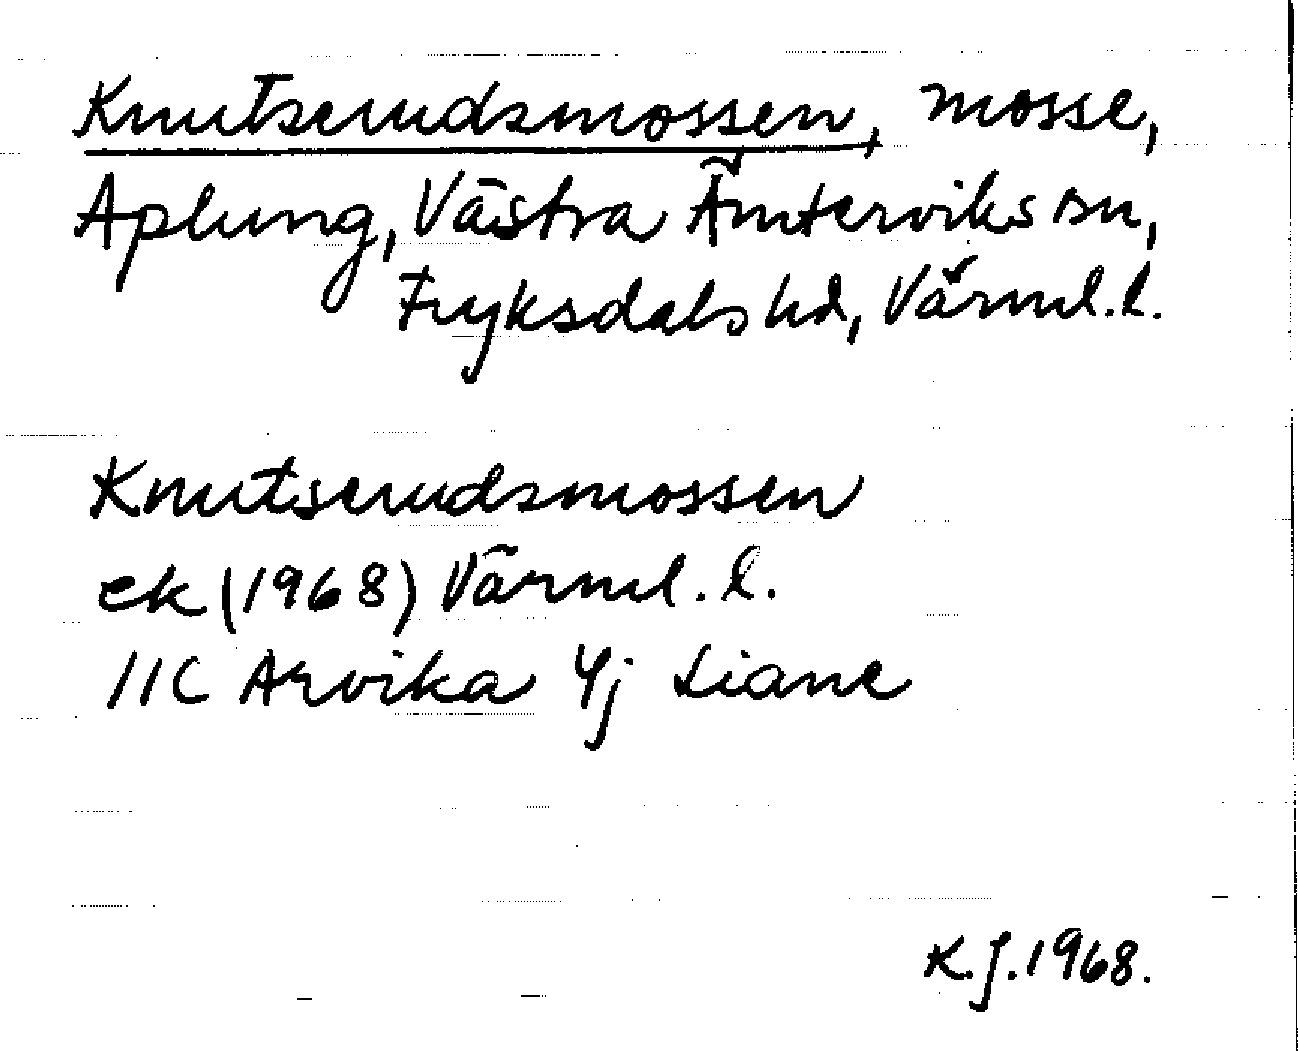 Knutserudsmossen, mosse,
Aplung, Västra Ämterviks sn,
Fryksdals hd, Värml. l.
Knutserudsmossen
ek (1968) Värml. l.
11C Arvika 4j Liane
K.J. 1968.